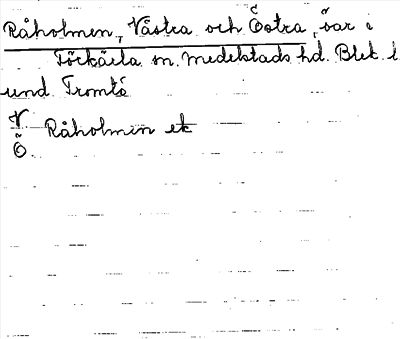 Råholmen, Västra och Östra, öar i
Förkärla sn. Medelstads hd. Blek. l
und. Tromtö
V
Ö Råholmen ek